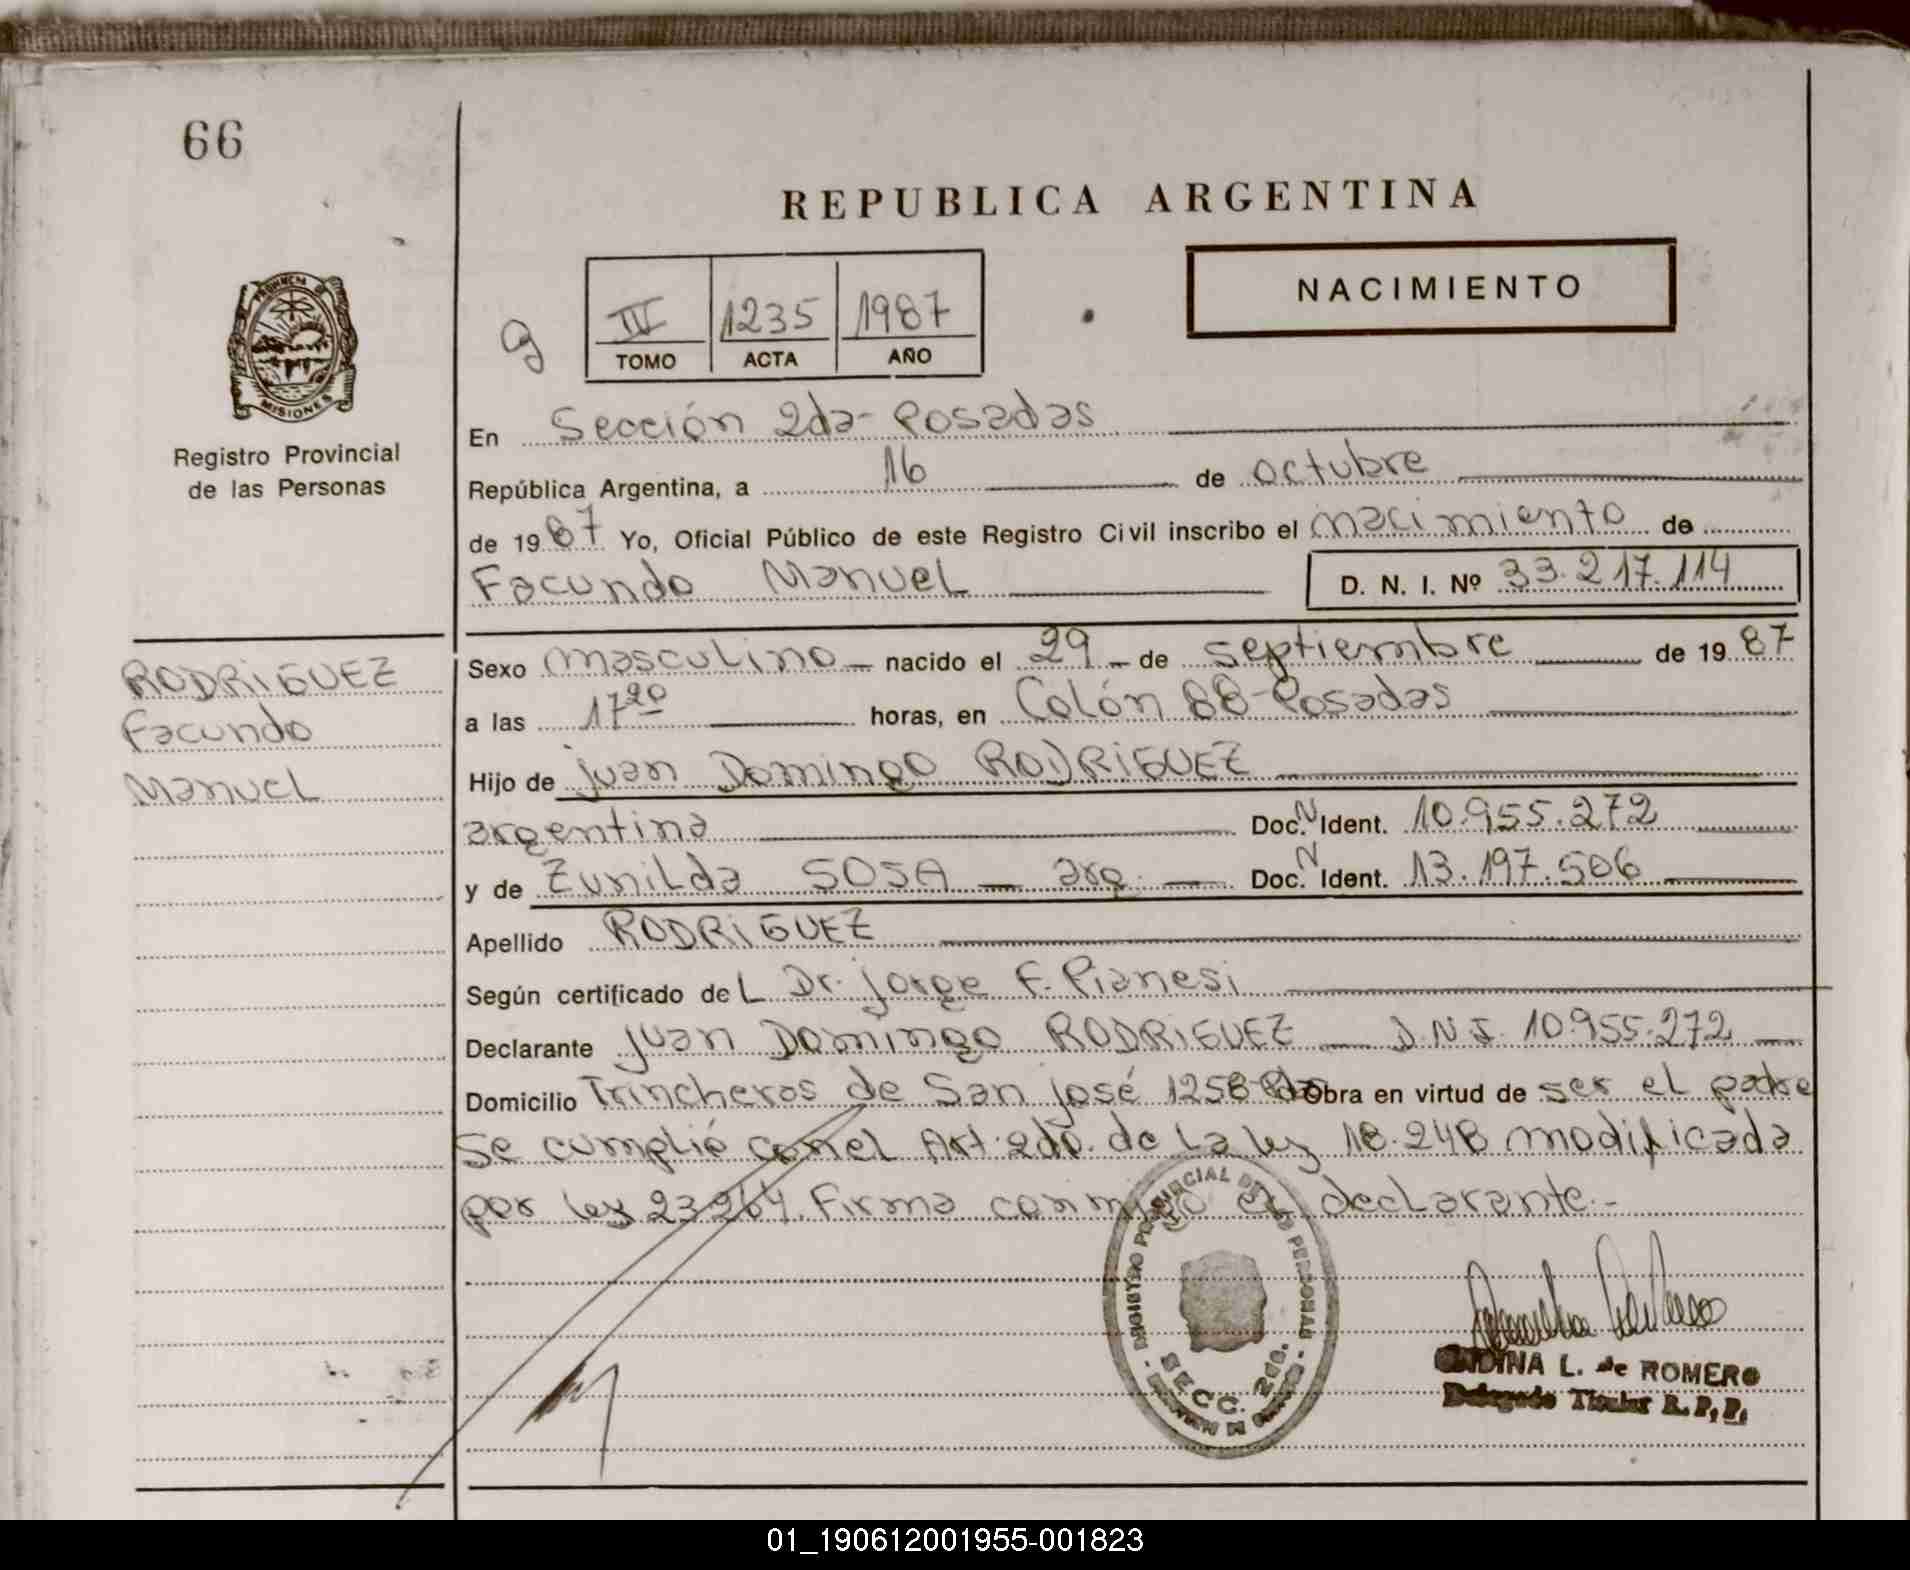 66
REPUBLICA ARGENTINA
NACIMIENTO
III 1235 1987
TOMO ACTA AÑO
PROVINCIA DE MISIONES
Registro Provincial
de las Personas
En Sección 2da- Posadas
República Argentina, a 16 de octubre
de 1987 Yo, Oficial Público de este Registro Civil inscribo el nacimiento de
Facundo Manuel D. N. I. Nº 33.217.114
RODRIGUEZ
Facundo
Manuel
Sexo masculino nacido el 29 de septiembre de 1987
a las 17 20 horas, en Colón 88-Posadas
Hijo de Juan Domingo RODRIGUEZ
argentina Doc. N Ident. 10.955.272
y de Zunilda SOSA arg. Doc. N Ident. 13.197.506
Apellido RODRIGUEZ
Según certificado del Dr. Jorge F. Pianesi
Declarante Juan Domingo RODRIGUEZ D.N.I. 10.955.272
Domicilio Trincheros de San José 1258 Obra en virtud de ser el padre
Se cumplió con el Art. 2do. de la ley 18.248 modificada
por ley 23264. Firma conmigo el declarante.-
REGISTRO PROVINCIAL DE LAS PERSONAS
SECC. 2da.
L. de ROMERO
Delegado Titular R. P. P.
01_190612001955-001823